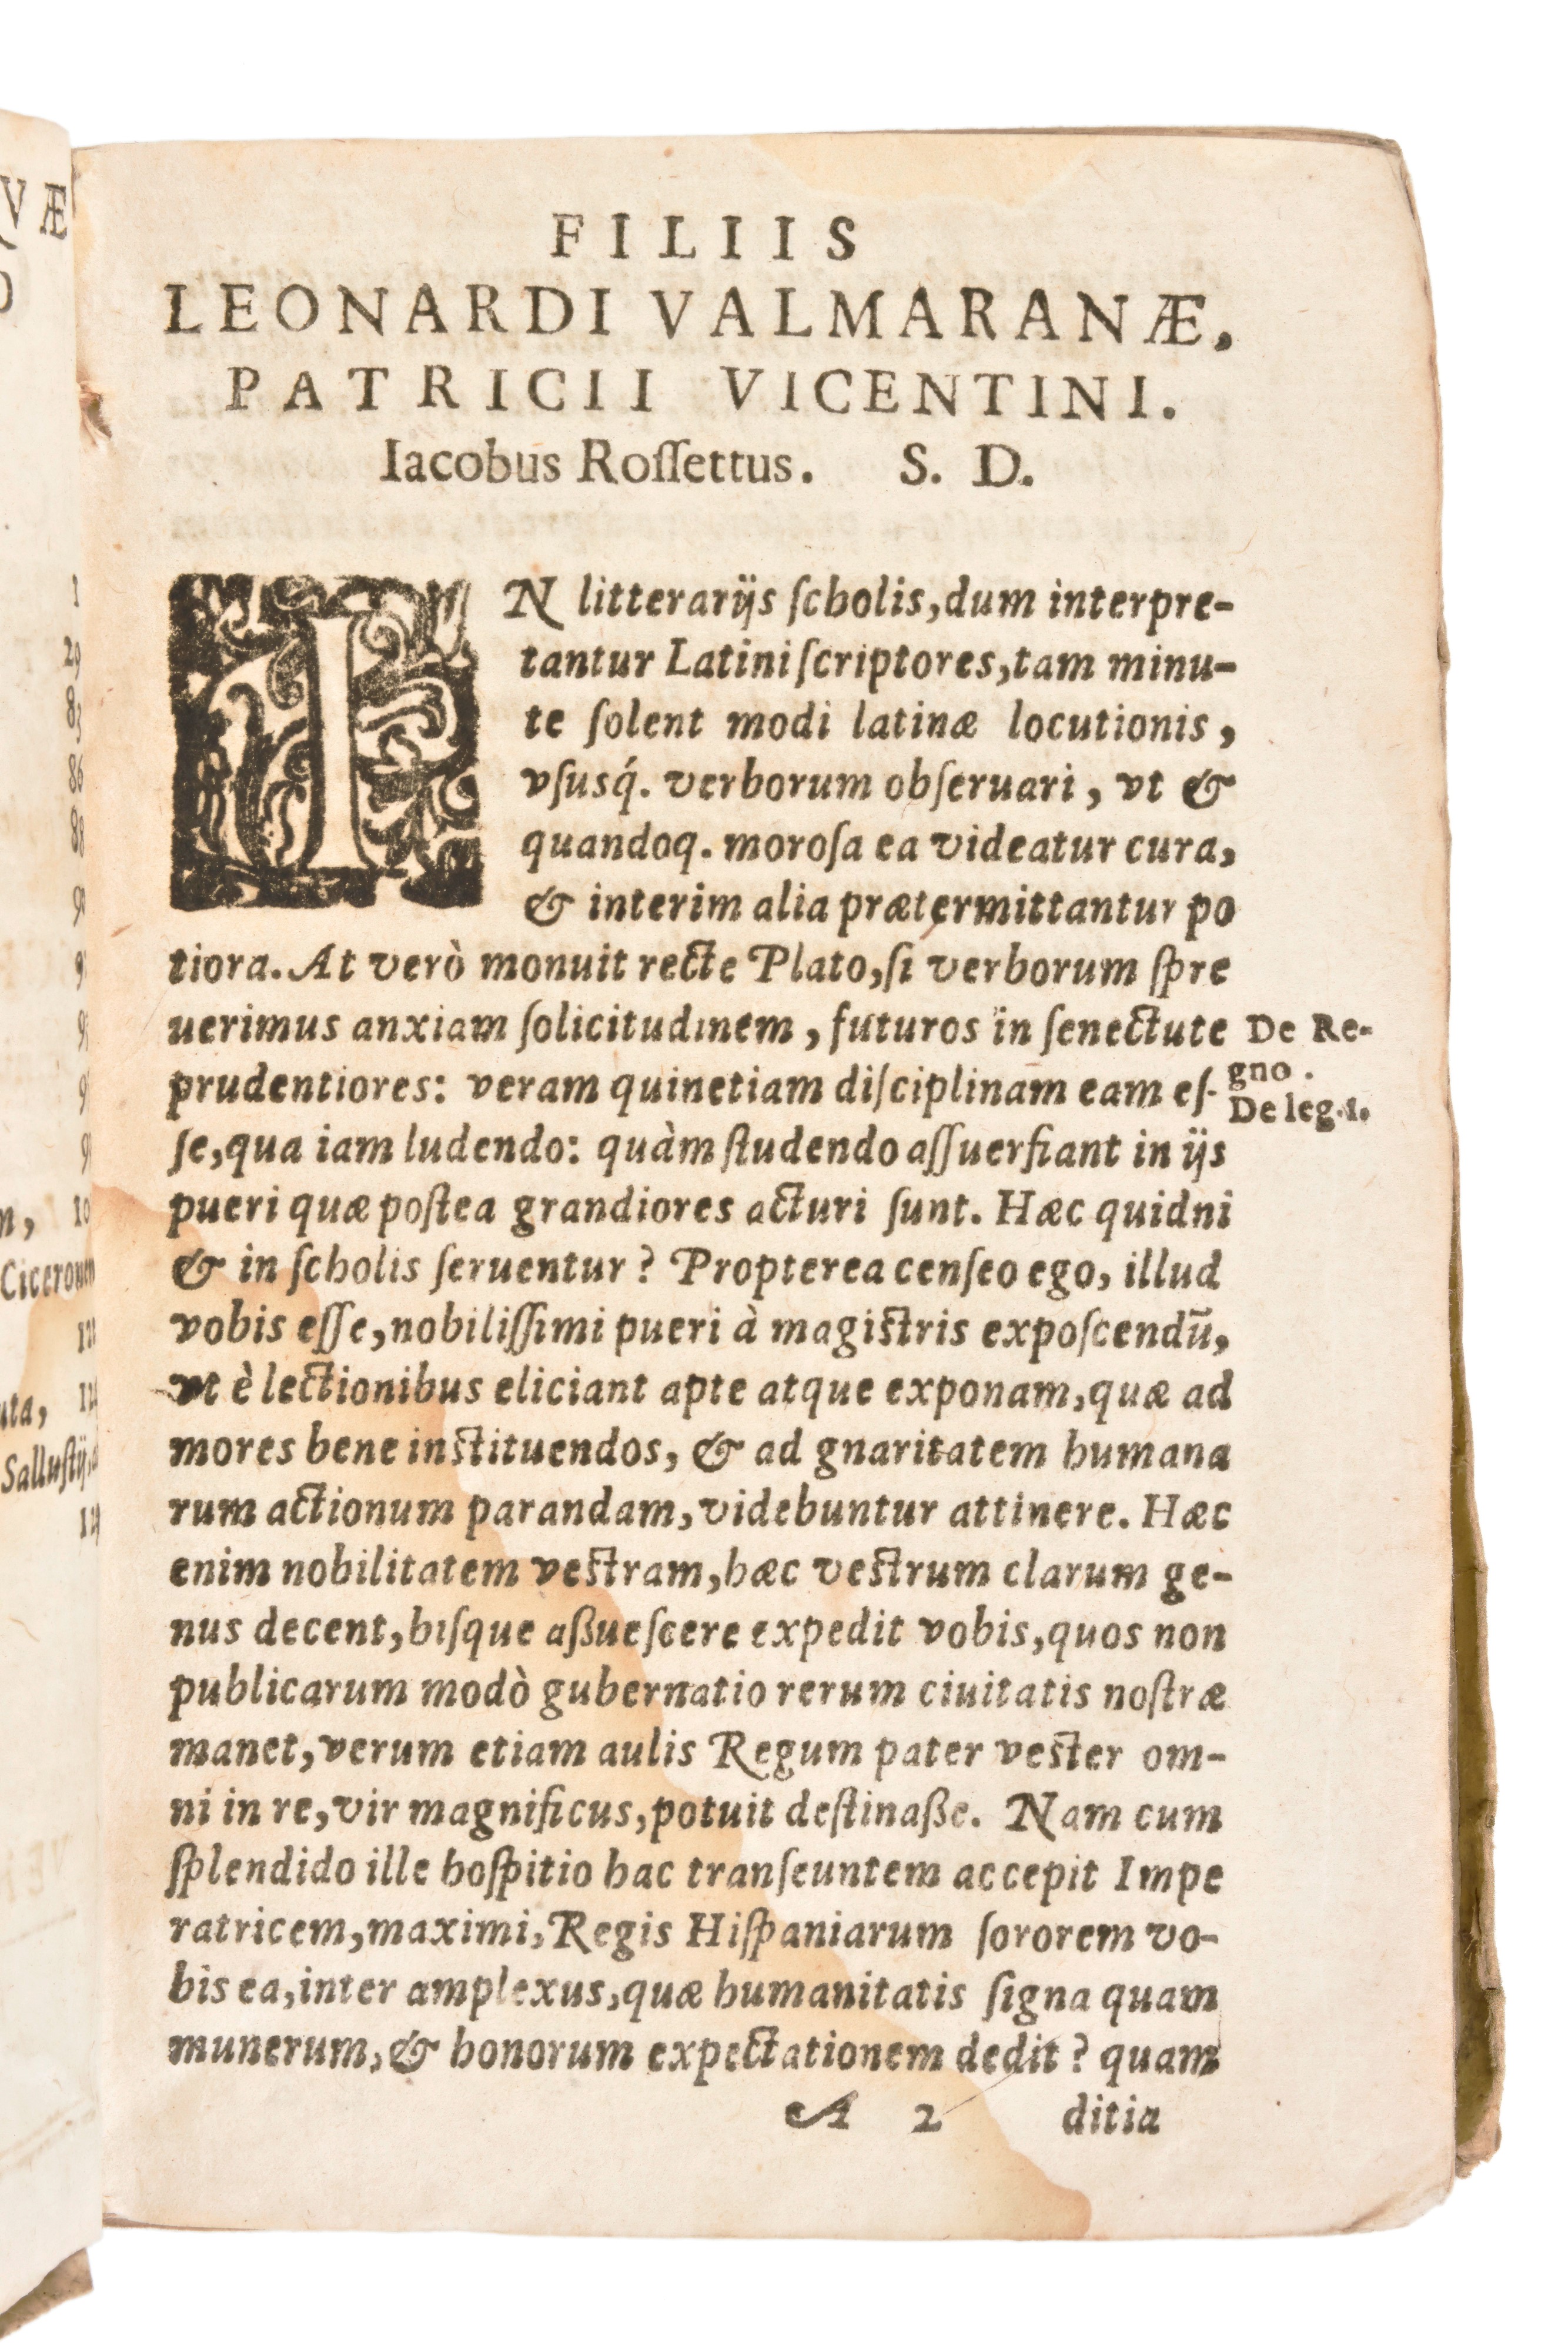 VÆ
1
29
83
86
88
10
Ciceronem
uta,
Sallustij,
FILIIS
LEONARDI VALMARANÆ,
PATRICII VICENTINI.
Iacobus Roſſettus. S. D.
IN litterarijs ſcholis, dum interpre-
tantur Latini ſcriptores, tam minu-
te ſolent modi latinæ locutionis,
vſusq́. verborum obſeruari, vt &
quandoq. moroſa ea videatur cura,
& interim alia prætermittantur po
tiora. At verò monuit recte Plato, ſi verborum ſpre
uerimus anxiam ſolicitudinem, futuros in ſenectute
De Re-
prudentiores: veram quinetiam diſciplinam eam eſ-
gno.
De leg. 1.
ſe, qua iam ludendo: quàm ſtudendo aſſuerfiant in ijs
pueri quæ poſtea grandiores acturi ſunt. Hæc quidni
& in ſcholis ſeruentur? Propterea cenſeo ego, illud
vobis eſſe, nobiliſſimi pueri à magistris expoſcendū,
vt è lectionibus eliciant apte atque exponam, quæ ad
mores bene instituendos, & ad gnaritatem humana
rum actionum parandam, videbuntur attinere. Hæc
enim nobilitatem vestram, hæc vestrum clarum ge-
nus decent, hiſque aßueſcere expedit vobis, quos non
publicarum modò gubernatio rerum ciuitatis noſtræ
manet, verum etiam aulis Regum pater vester om-
ni in re, vir magnificus, potuit deſtinaße. Nam cum
ſplendido ille hoſpitio hac tranſeuntem accepit Impe
ratricem, maximi, Regis Hiſpaniarum ſororem vo-
bis ea, inter amplexus, quæ humanitatis ſigna quam
munerum, & honorum expectationem dedit? quam
A 2 ditia